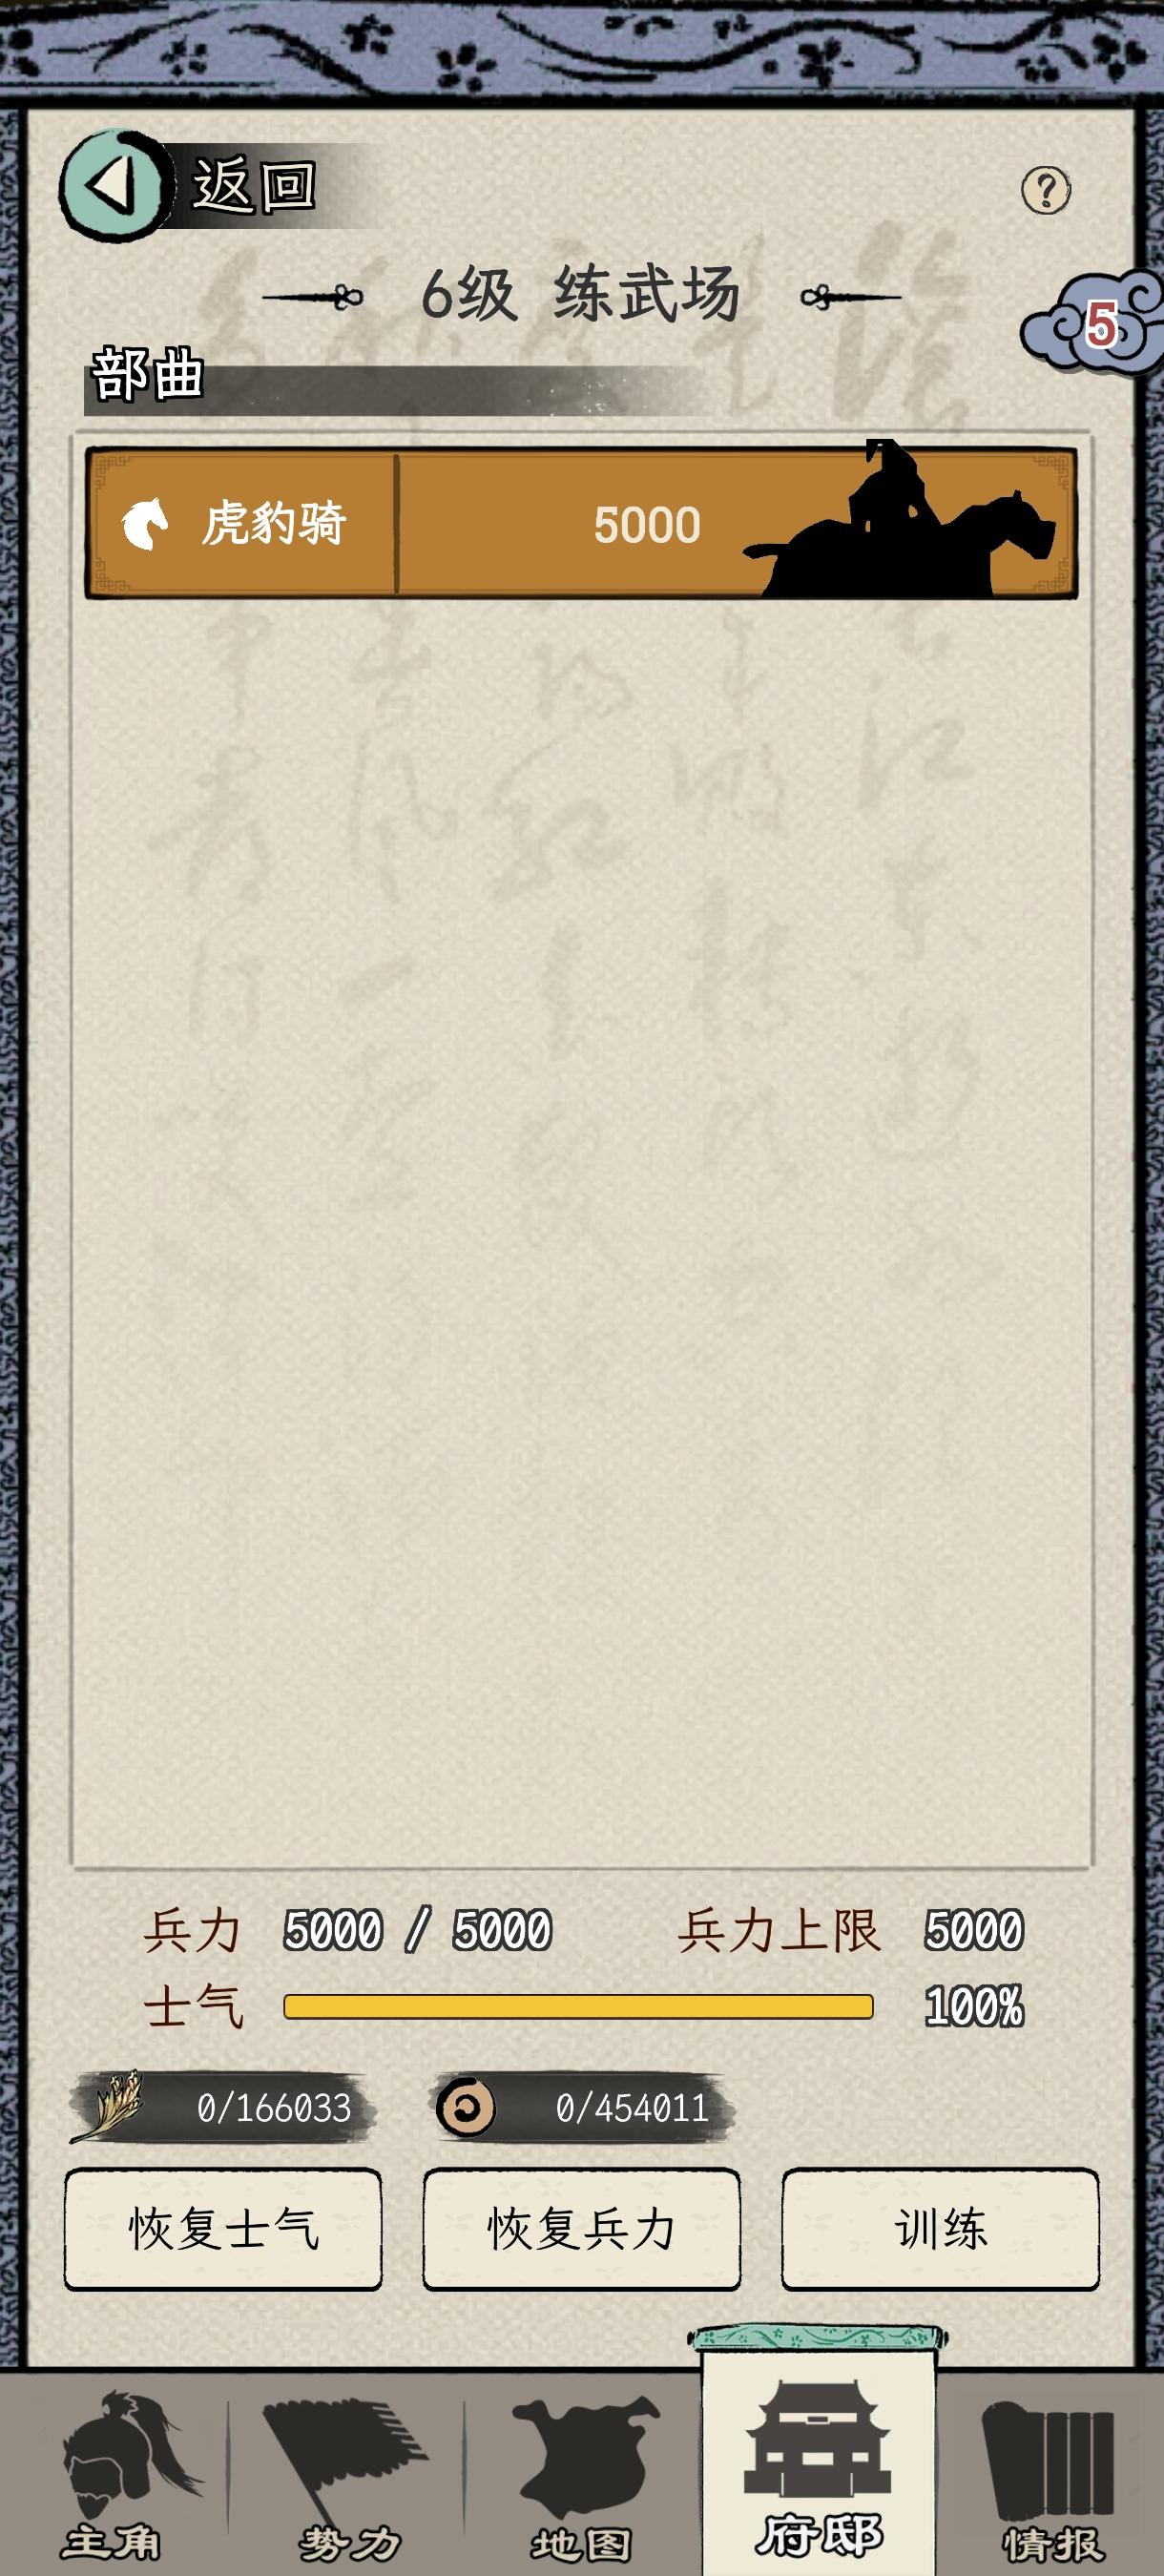 返回
?
6级 练武场
5
部曲
虎豹骑 5000
兵力 5000 / 5000 兵力上限 5000
士气 100%
0/166033 0/454011
恢复士气 恢复兵力 训练
主角 势力 地图 府邸 情报